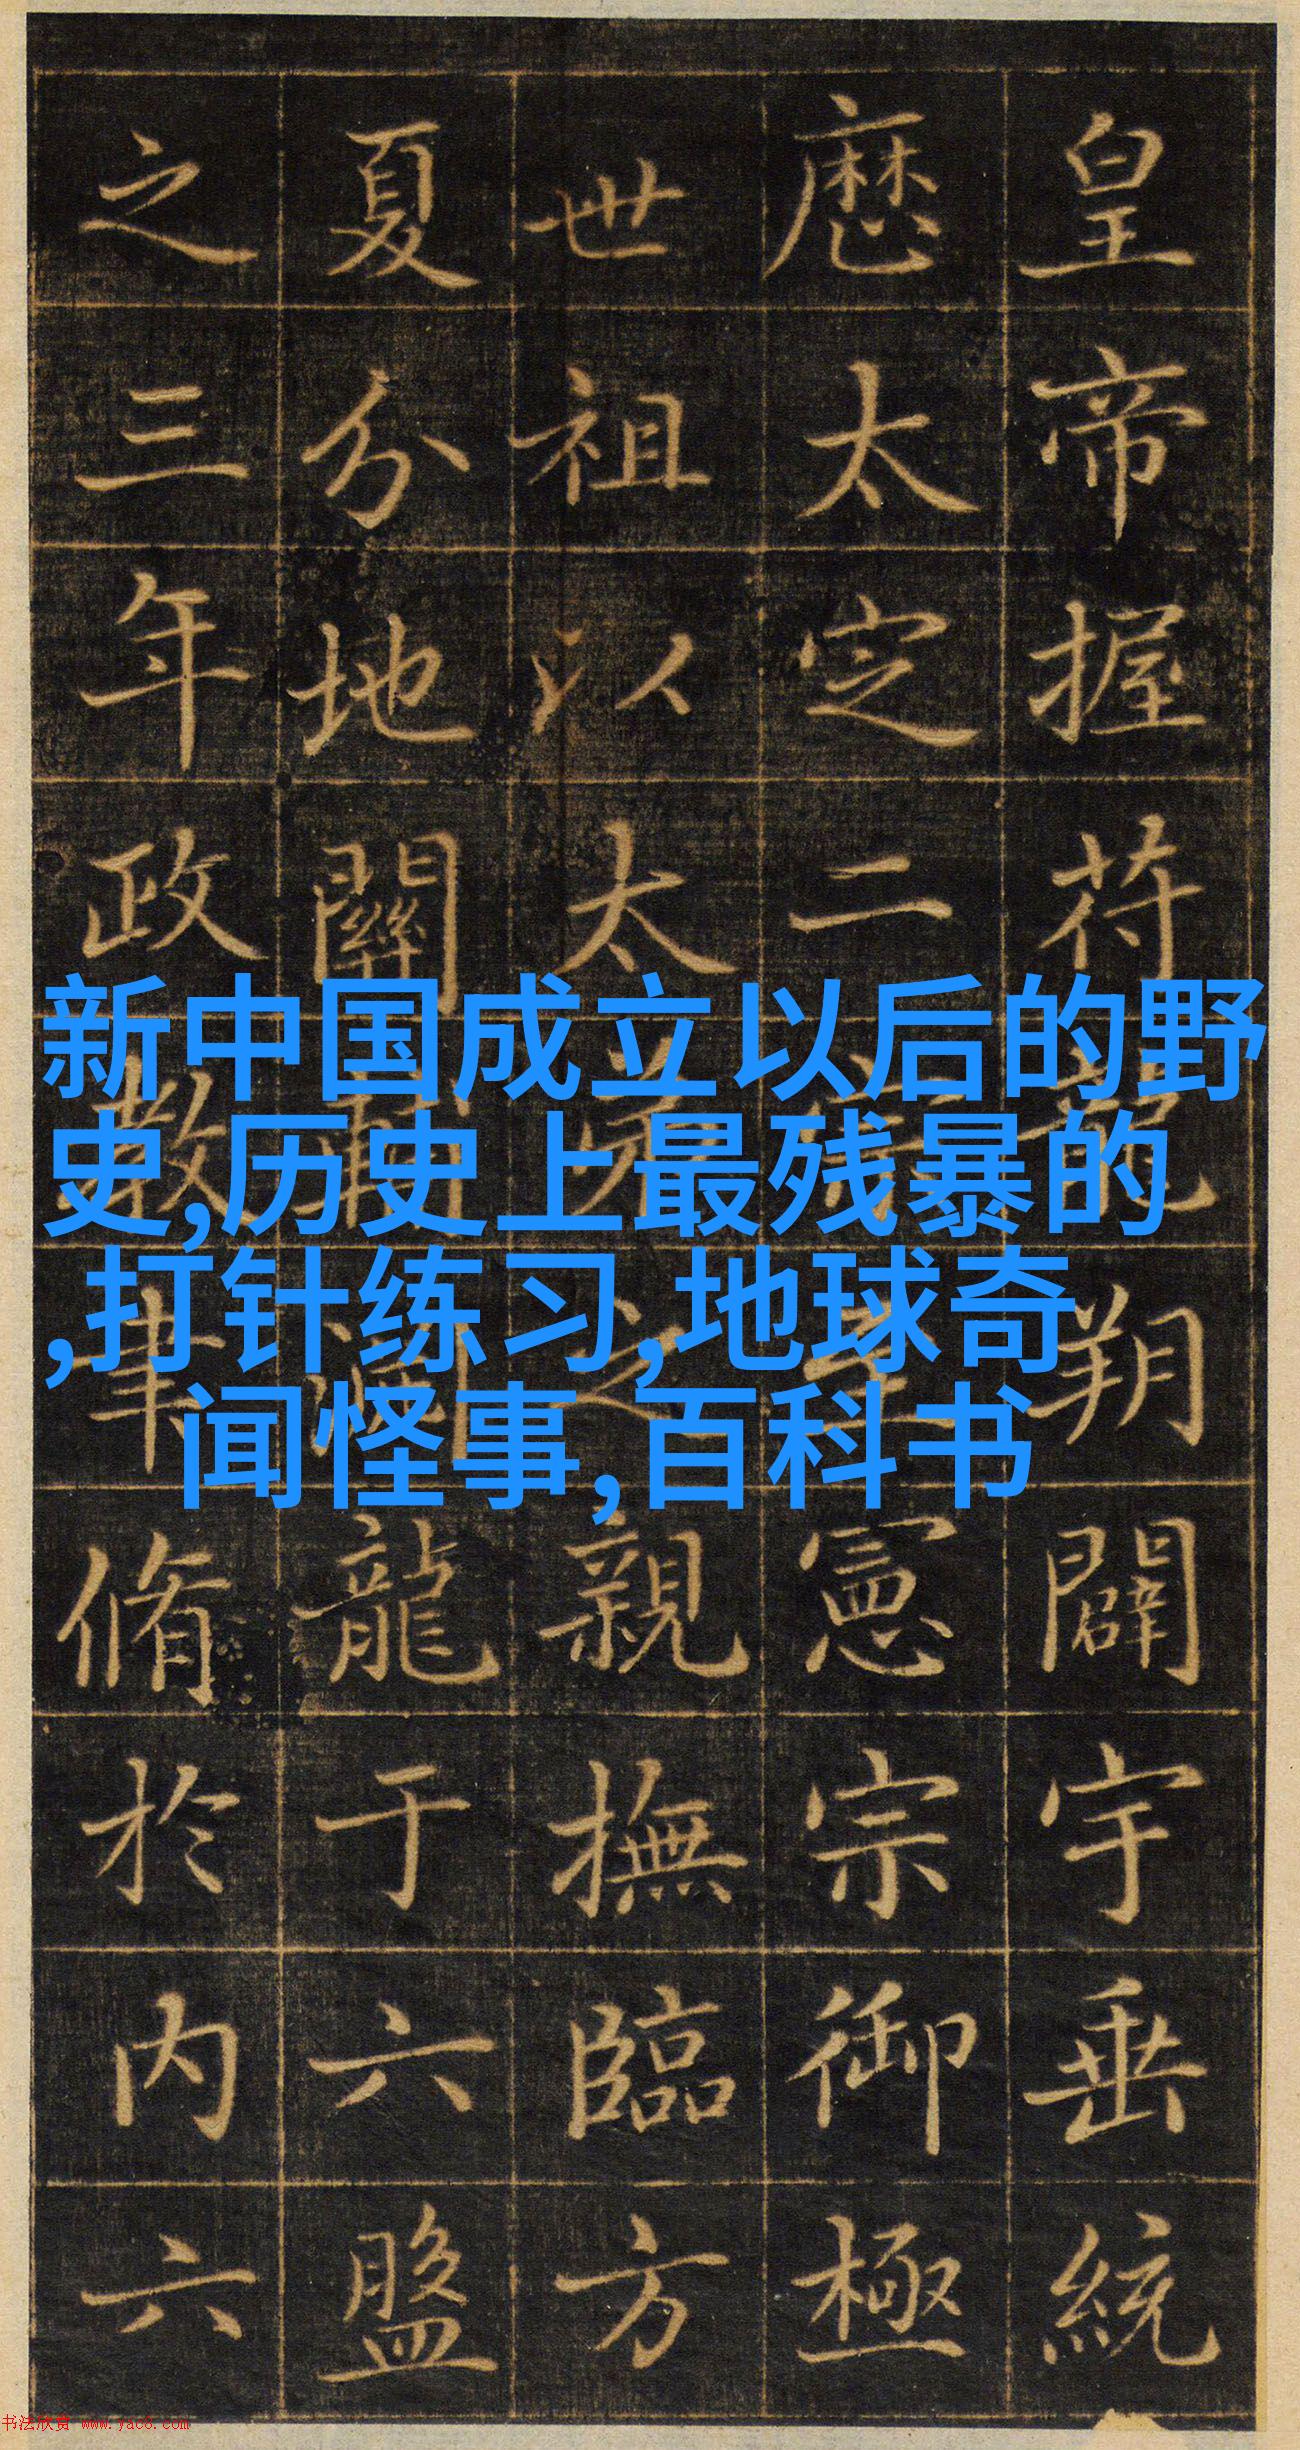 皇帝握苻龍朔闢宇垂統
厯太定二宗至憲宗御極
世祖以太弟之親撫臨方
夏分地關輔龍于六盤
之三年政教聿脩於內六
新中国成立以后的野
史,历史上最残暴的
,打针练习,地球奇
闻怪事,百科书
书法欣赏 www.yac8.com